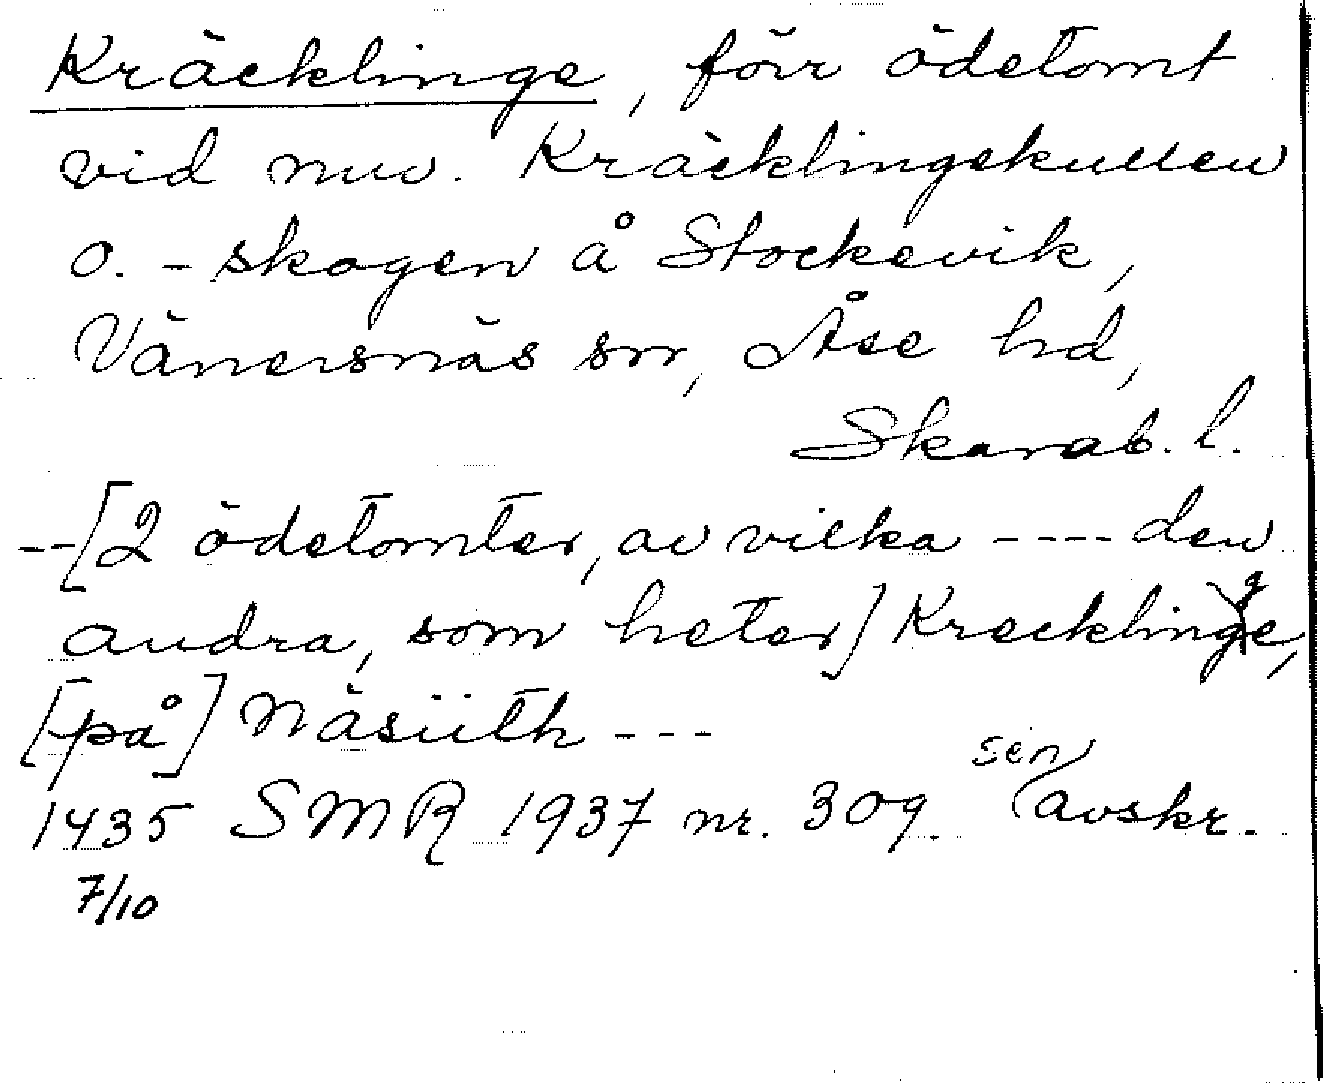 Kräcklinge, förr ödetomt
vid nuv. Kräcklingekullen
o. -skogen å Stockevik,
Vänersnäs sn, Åse hd,
Skarab. l.
--[2 ödetomter, av vilka ---- den
andra, som heter] Krecklinge,
[på] Näsiith ---
1435 SMR 1937 nr. 309. (sen avskr.
7/10